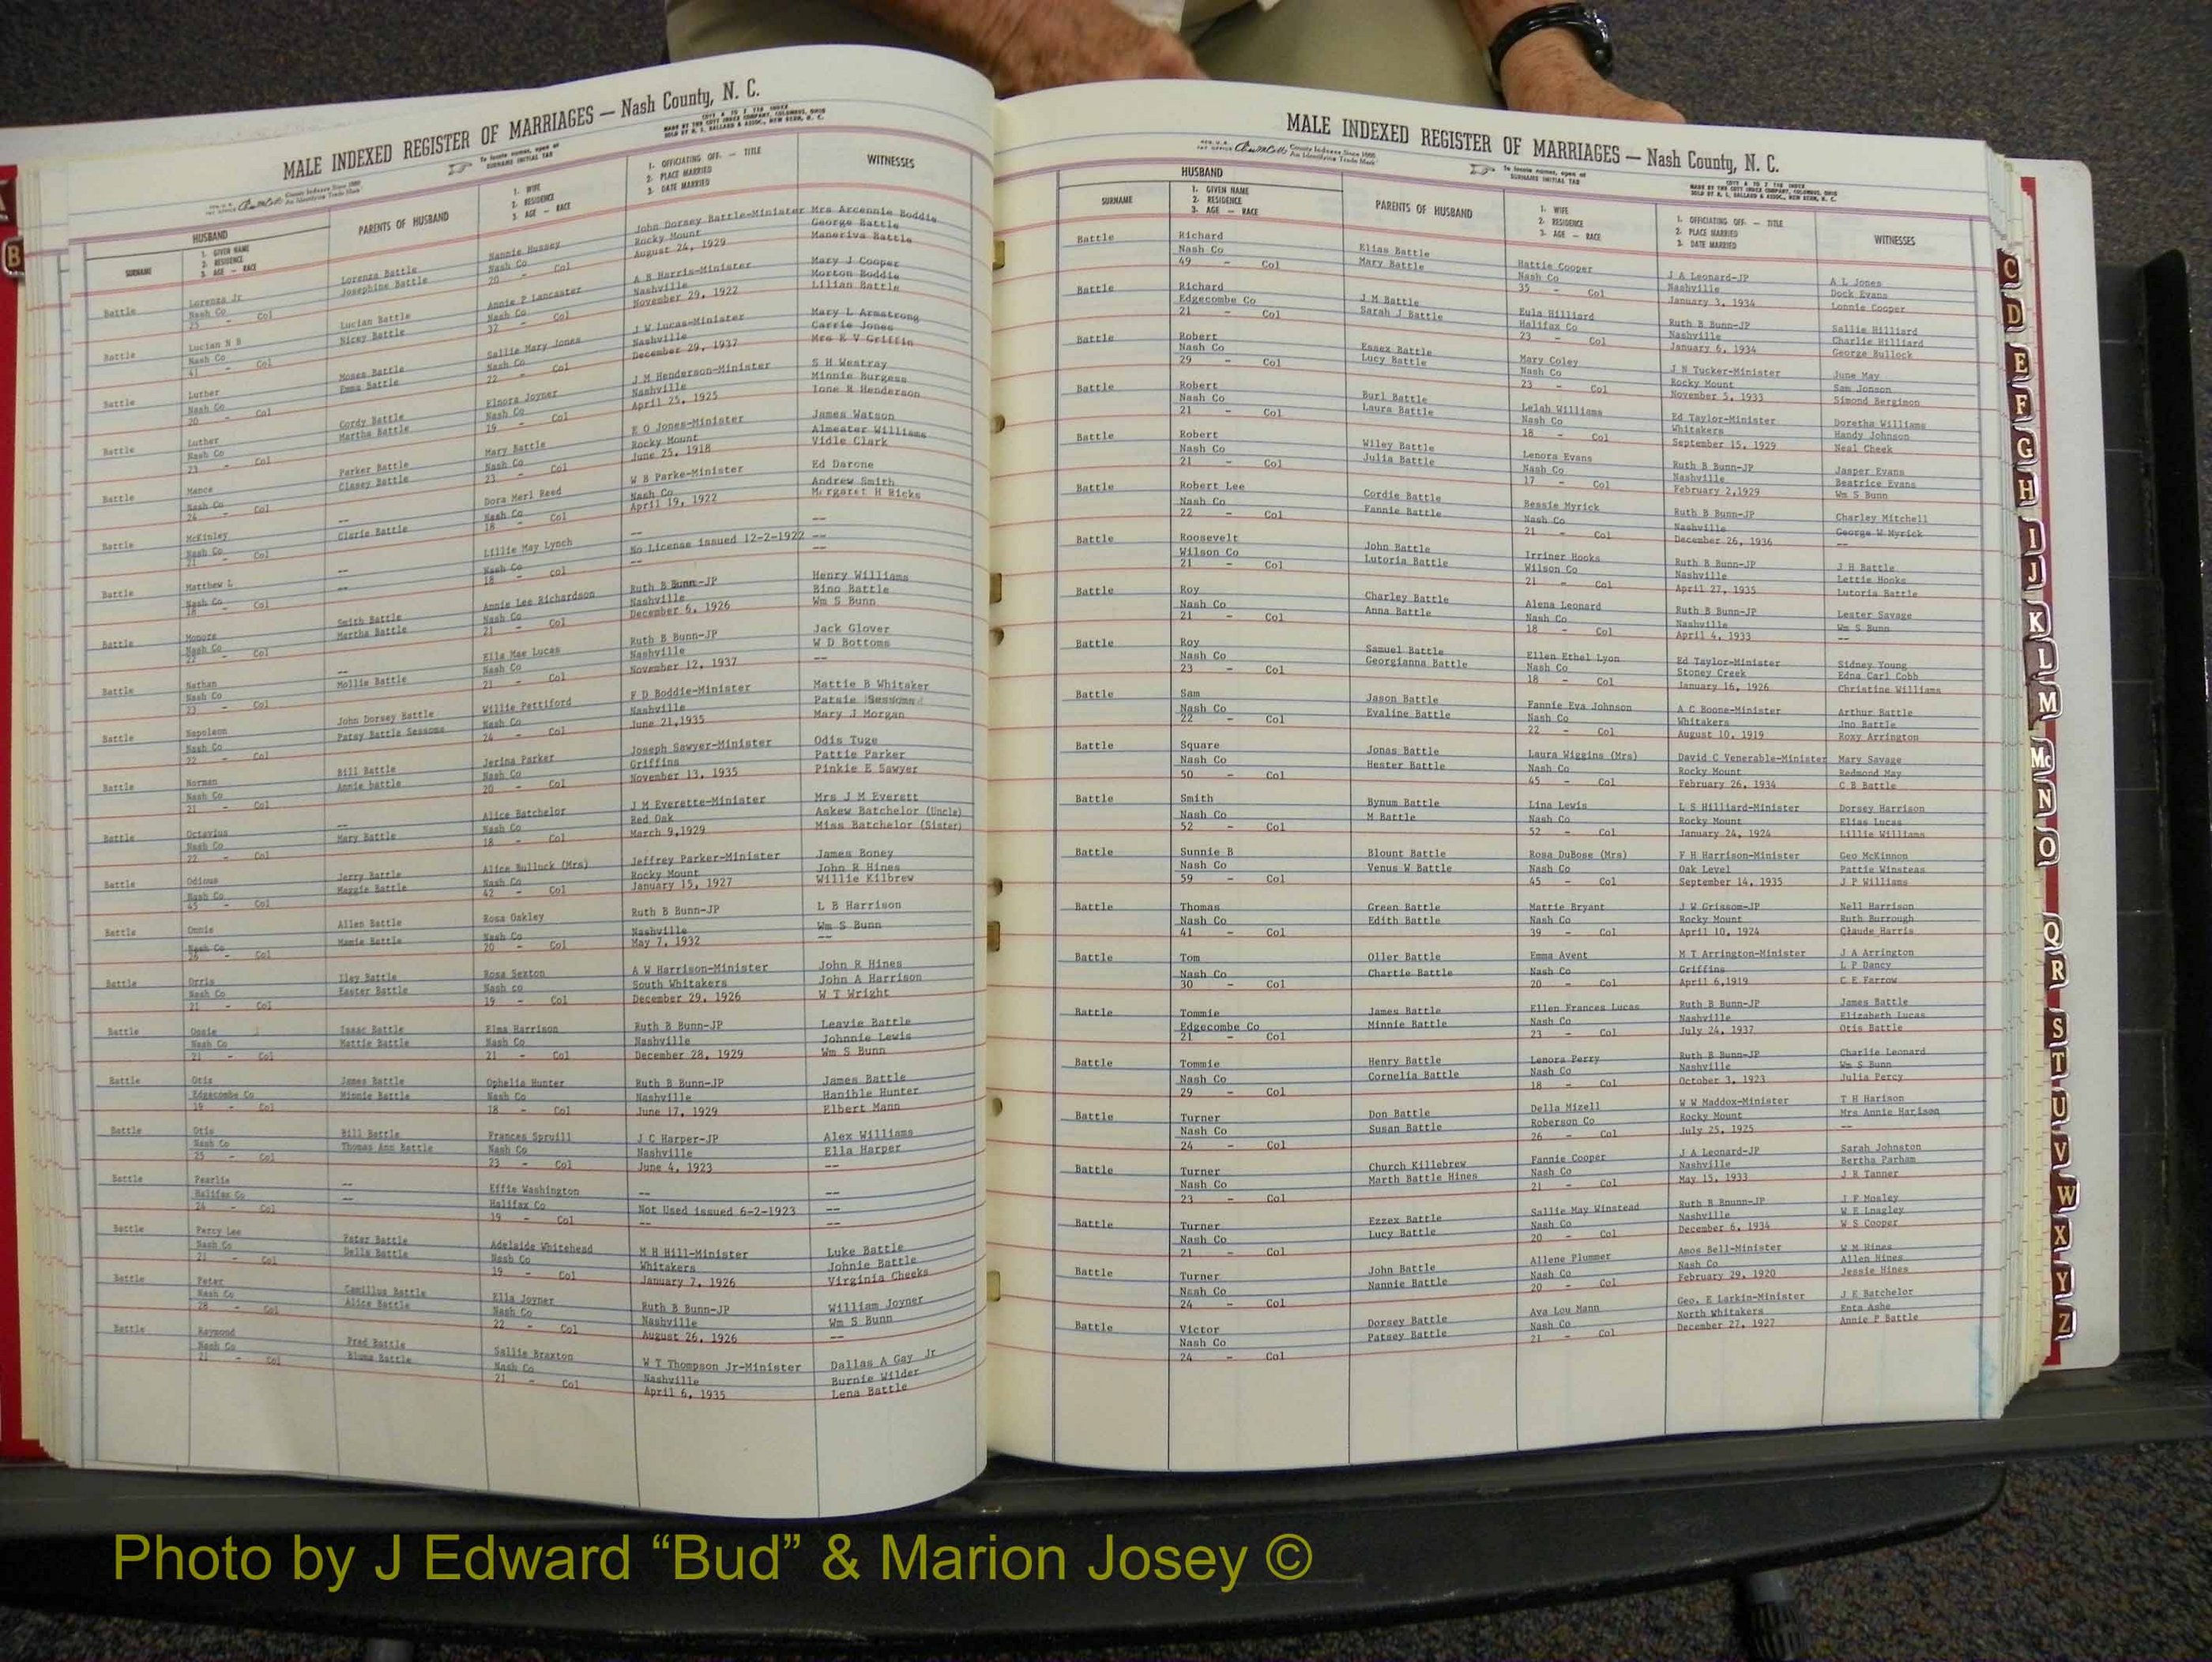 MALE INDEXED REGISTER OF MARRIAGES — Nash County, N. C.
To locate names, open at
SURNAME INITIAL TAB
COTT A TO Z TAB INDEX
MADE BY THE COTT INDEX COMPANY, COLUMBUS, OHIO
County Indexes Since 1888
An Identifying Trade Mark
HUSBAND
SURNAME
1. GIVEN NAME
2. RESIDENCE
3. AGE — RACE
PARENTS OF HUSBAND
1. WIFE
2. RESIDENCE
3. AGE — RACE
1. OFFICIATING OFF. — TITLE
2. PLACE MARRIED
3. DATE MARRIED
WITNESSES
Battle Lorenza Jr Lorenza Battle Nannie Hussey John Dorsey Battle-Minister Mrs Arcennie Boddie
Nash Co Josephine Battle Nash Co Rocky Mount George Battle
25 - Col 20 - Col August 24, 1929 Maneriva Battle
Battle Lucian N B Lucian Battle Annie P Lancaster A B Harris-Minister Mary J Cooper
Nash Co Nicey Battle Nash Co Nashville Morton Boddie
41 - Col 32 - Col November 29, 1922 Lilian Battle
Battle Luther Moses Battle Sallie Mary Jones J W Lucas-Minister Mary L Armstrong
Nash Co Emma Battle Nash Co Nashville Carrie Jones
20 - Col 22 - Col December 29, 1937 Mrs E V Griffin
Battle Luther Cordy Battle Elnora Joyner J M Henderson-Minister S H Westray
Nash Co Martha Battle Nash Co Nashville Minnie Burgess
23 - Col 19 - Col April 25, 1925 Ione R Henderson
Battle Mance Parker Battle Mary Battle E O Jones-Minister James Watson
Nash Co Classy Battle Nash Co Rocky Mount Almeater Williams
24 - Col 23 - Col June 25, 1918 Vidle Clark
Battle McKinley -- Dora Merl Reed W B Parke-Minister Ed Darone
Nash Co Clarie Battle Nash Co Nash Co Andrew Smith
21 - Col 18 - Col April 19, 1922 Margaret H Ricks
Battle Matthew L -- Lillie May Lynch -- --
Nash Co -- Nash Co No License issued 12-2-1922 --
18 - Col 18 - col -- --
Battle Monore Smith Battle Annie Lee Richardson Ruth B Bunn-JP Henry Williams
Nash Co Martha Battle Nash Co Nashville Bino Battle
22 - Col 21 - Col December 6, 1926 Wm S Bunn
Battle Nathan -- Ella Mae Lucas Ruth B Bunn-JP Jack Glover
Nash Co Mollie Battle Nash Co Nashville W D Bottoms
23 - Col 21 - Col November 12, 1937 --
Battle Napoleon John Dorsey Battle Willie Pettiford F D Boddie-Minister Mattie B Whitaker
Nash Co Patsy Battle Sessoms Nash Co Nashville Patsie Sessoms
22 - Col 24 - Col June 21,1935 Mary J Morgan
Battle Norman Bill Battle Jerina Parker Joseph Sawyer-Minister Odis Tuge
Nash Co Annie battle Nash Co Griffins Pattie Parker
21 - Col 20 - Col November 13, 1935 Pinkie E Sawyer
Battle Octavius -- Alice Batchelor J M Everette-Minister Mrs J M Everett
Nash Co Mary Battle Nash Co Red Oak Askew Batchelor (Uncle)
22 - Col 18 - Col March 9,1929 Miss Batchelor (Sister)
Battle Odious Jerry Battle Alice Bullock (Mrs) Jeffrey Parker-Minister James Boney
Nash Co Maggie Battle Nash Co Rocky Mount John R Hines
45 - Col 42 - Col January 15, 1927 Willie Kilbrew
Battle Onnie Allen Battle Rosa Oakley Ruth B Bunn-JP L B Harrison
Nash Co Mamie Battle Nash Co Nashville Wm S Bunn
- Col 20 - Col May 7, 1932 --
Battle Orris Iley Battle Rosa Sexton A W Harrison-Minister John R Hines
Nash Co Easter Battle Nash co South Whitakers John A Harrison
21 - Col 19 - Col December 29, 1926 W T Wright
Battle Ossie Isaac Battle Elma Harrison Ruth B Bunn-JP Leavie Battle
Nash Co Mattie Battle Nash Co Nashville Johnnie Lewis
21 - Col 21 - Col December 28, 1929 Wm S Bunn
Battle Otis James Battle Ophelia Hunter Ruth B Bunn-JP James Battle
Edgecombe Co Minnie Battle Nash Co Nashville Hanible Hunter
19 - Col 18 - Col June 17, 1929 Elbert Mann
Battle Otis Bill Battle Frances Spruill J C Harper-JP Alex Williams
Nash Co Thomas Ann Battle Nash Co Nashville Ella Harper
25 - Col 23 - Col June 4, 1923 --
Battle Pearlie -- Effie Washington -- --
Halifax Co -- Halifax Co Not Used issued 6-2-1923 --
24 - Col 19 - Col -- --
Battle Percy Lee Peter Battle Adelaide Whitehead M H Hill-Minister Luke Battle
Nash Co Della Battle Nash Co Whitakers Johnie Battle
21 - Col 19 - Col January 7, 1926 Virginia Cheeks
Battle Peter Camillus Battle Ella Joyner Ruth B Bunn-JP William Joyner
Nash Co Alice Battle Nash Co Nashville Wm S Bunn
28 - Col 22 - Col August 26, 1926 --
Battle Raymond Fred Battle Sallie Braxton W T Thompson Jr-Minister Dallas A Gay Jr
Nash Co Bluma Battle Nash Co Nashville Burnie Wilder
21 - Col 21 - Col April 6, 1935 Lena Battle
MALE INDEXED REGISTER OF MARRIAGES — Nash County, N. C.
County Indexes Since 1888
An Identifying Trade Mark
To locate names, open at
SURNAME INITIAL TAB
COTT A TO Z TAB INDEX
MADE BY THE COTT INDEX COMPANY, COLUMBUS, OHIO
HUSBAND
SURNAME
1. GIVEN NAME
2. RESIDENCE
3. AGE — RACE
PARENTS OF HUSBAND
1. WIFE
2. RESIDENCE
3. AGE — RACE
1. OFFICIATING OFF. — TITLE
2. PLACE MARRIED
3. DATE MARRIED
WITNESSES
Battle Richard Elias Battle Hattie Cooper J A Leonard-JP A L Jones
Nash Co Mary Battle Nash Co Nashville Dock Evans
49 - Col 35 - Col January 3, 1934 Lonnie Cooper
Battle Richard J M Battle Eula Hilliard Ruth B Bunn-JP Sallie Hilliard
Edgecombe Co Sarah J Battle Halifax Co Nashville Charlie Hilliard
21 - Col 23 - Col January 6, 1934 George Bullock
Battle Robert Essex Battle Mary Coley J N Tucker-Minister June May
Nash Co Lucy Battle Nash Co Rocky Mount Sam Jonson
29 - Col 23 - Col November 5, 1933 Simond Bergimon
Battle Robert Burl Battle Lelah Williams Ed Taylor-Minister Doretha Williams
Nash Co Laura Battle Nash Co Whitakers Handy Johnson
21 - Col 18 - Col September 15, 1929 Neal Cheek
Battle Robert Wiley Battle Lenora Evans Ruth B Bunn-JP Jasper Evans
Nash Co Julia Battle Nash Co Nashville Beatrice Evans
21 - Col 17 - Col February 2,1929 Wm S Bunn
Battle Robert Lee Cordie Battle Bessie Myrick Ruth B Bunn-JP Charley Mitchell
Nash Co Fannie Battle Nash Co Nashville George W Myrick
22 - Col 21 - Col December 26, 1936 --
Battle Roosevelt John Battle Irriner Hooks Ruth B Bunn-JP J H Battle
Wilson Co Lutoria Battle Wilson Co Nashville Lettie Hooks
21 - Col 21 - Col April 27, 1935 Lutoria Battle
Battle Roy Charley Battle Alena Leonard Ruth B Bunn-JP Lester Savage
Nash Co Anna Battle Nash Co Nashville Wm S Bunn
21 - Col 18 - Col April 4, 1933 --
Battle Roy Samuel Battle Ellen Ethel Lyon Ed Taylor-Minister Sidney Young
Nash Co Georgianna Battle Nash Co Stoney Creek Edna Carl Cobb
23 - Col 18 - Col January 16, 1926 Christine Williams
Battle Sam Jason Battle Fannie Eva Johnson A C Boone-Minister Arthur Battle
Nash Co Evaline Battle Nash Co Whitakers Jno Battle
22 - Col 22 - Col August 10, 1919 Roxy Arrington
Battle Square Jonas Battle Laura Wiggins (Mrs) David C Venerable-Minister Mary Savage
Nash Co Hester Battle Nash Co Rocky Mount Redmond May
50 - Col 45 - Col February 26, 1934 C B Battle
Battle Smith Bynum Battle Lina Lewis L S Hilliard-Minister Dorsey Harrison
Nash Co M Battle Nash Co Rocky Mount Elias Lucas
52 - Col 52 - Col January 24, 1924 Lillie Williams
Battle Sunnie B Blount Battle Rosa DuBose (Mrs) F H Harrison-Minister Geo McKinnon
Nash Co Venus W Battle Nash Co Oak Level Pattie Winsteas
59 - Col 45 - Col September 14, 1935 J P Williams
Battle Thomas Green Battle Mattie Bryant J W Grissom-JP Nell Harrison
Nash Co Edith Battle Nash Co Rocky Mount Ruth Burrough
41 - Col 39 - Col April 10, 1924 Claude Harris
Battle Tom Oller Battle Emma Avent M T Arrington-Minister J A Arrington
Nash Co Chartie Battle Nash Co Griffins L P Dancy
30 - Col 20 - Col April 6,1919 C E Farrow
Battle Tommie James Battle Ellen Frances Lucas Ruth B Bunn-JP James Battle
Edgecombe Co Minnie Battle Nash Co Nashville Elizabeth Lucas
21 - Col 23 - Col July 24, 1937 Otis Battle
Battle Tommie Henry Battle Lenora Perry Ruth B Bunn-JP Charlie Leonard
Nash Co Cornelia Battle Nash Co Nashville Wm S Bunn
29 - Col 18 - Col October 3, 1923 Julia Percy
Battle Turner Don Battle Della Mizell W W Maddox-Minister T H Harison
Nash Co Susan Battle Roberson Co Rocky Mount Mrs Annie Harison
24 - Col 26 - Col July 25, 1925 --
Battle Turner Church Killebrew Fannie Cooper J A Leonard-JP Sarah Johnston
Nash Co Marth Battle Hines Nash Co Nashville Bertha Parham
23 - Col 21 - Col May 15, 1933 J R Tanner
Battle Turner Ezzex Battle Sallie May Winstead Ruth B Bnunn-JP J F Mosley
Nash Co Lucy Battle Nash Co Nashville W E Lnagley
21 - Col 20 - Col December 6, 1934 W S Cooper
Battle Turner John Battle Allene Plummer Amos Bell-Minister W M Hines
Nash Co Nannie Battle Nash Co Nash Co Allen Hines
24 - Col 20 - Col February 29, 1920 Jessie Hines
Battle Victor Dorsey Battle Ava Lou Mann Geo. E Larkin-Minister J E Batchelor
Nash Co Patsey Battle Nash Co North Whitakers Enta Ashe
24 - Col 21 - Col December 27, 1927 Annie P Battle
A
B
C
D
E
F
G
H
I
J
K
L
M
Mc
N
O
Q
R
S
T
U
V
W
X
Y
Z
Photo by J Edward “Bud” & Marion Josey ©